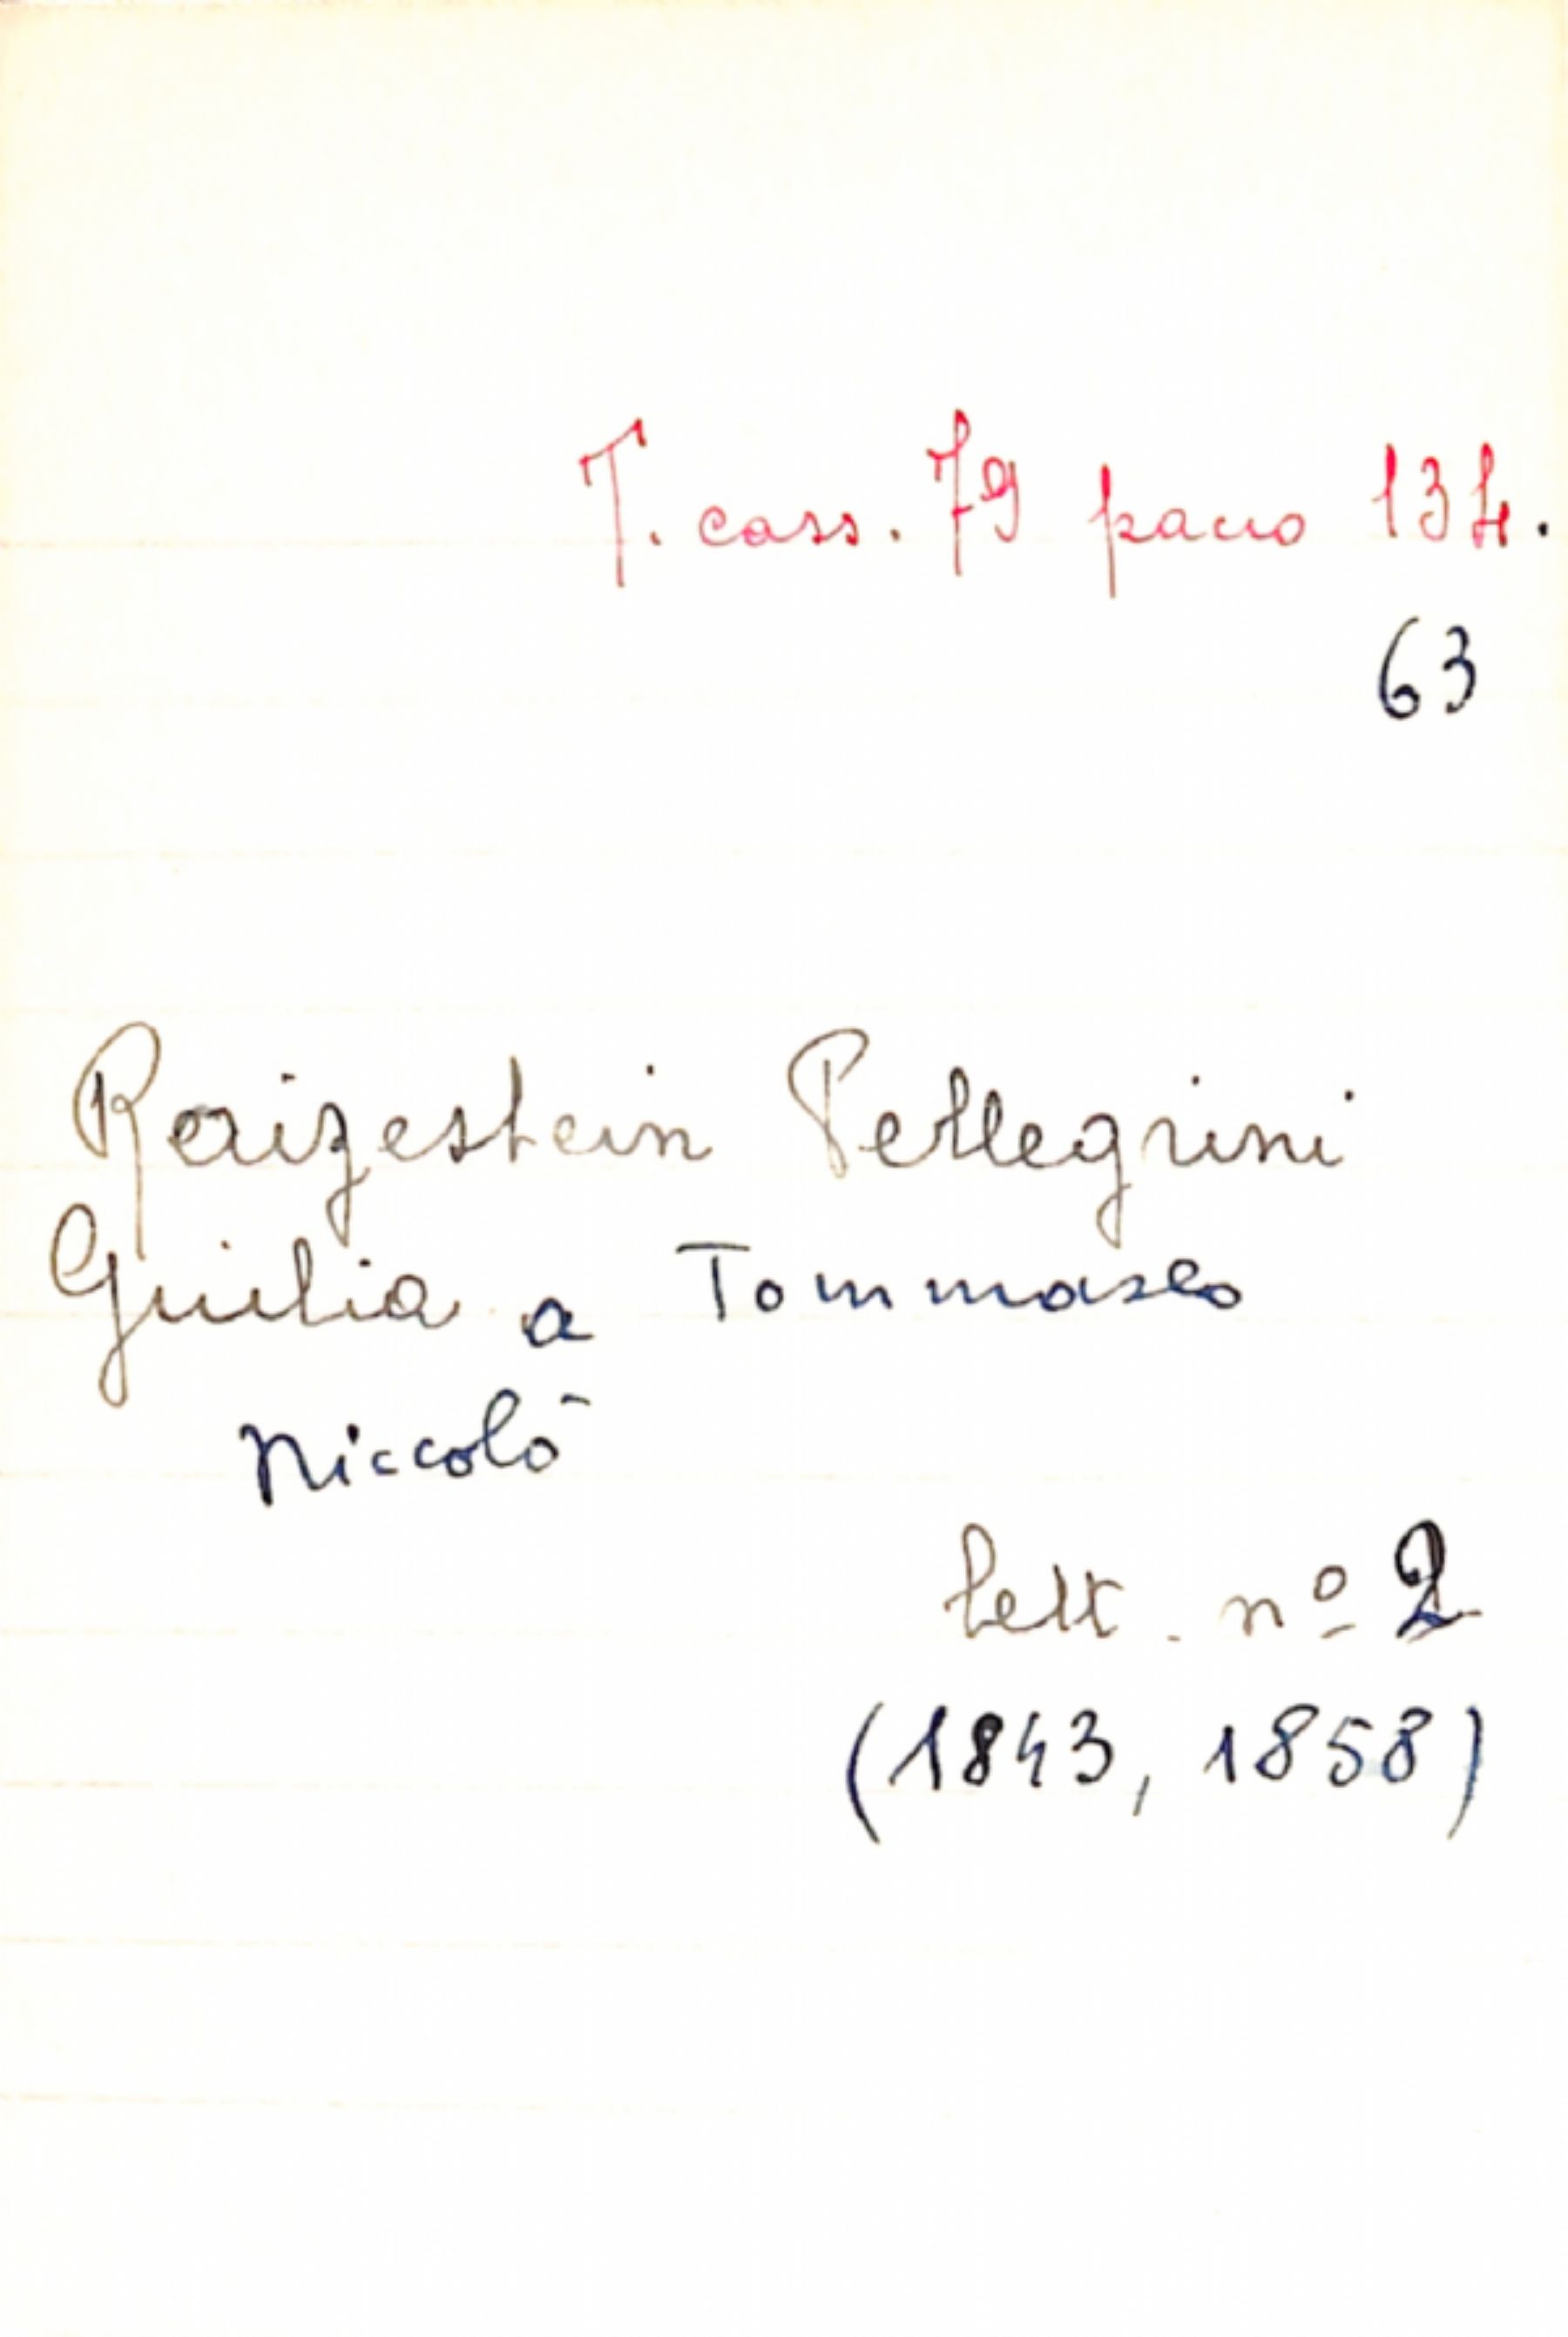 T. cass. 79 pacco 134.
63
Raizestein Pellegrini
Giulia a Tommaseo
Niccolò
lett. nº 2
(1843, 1858)